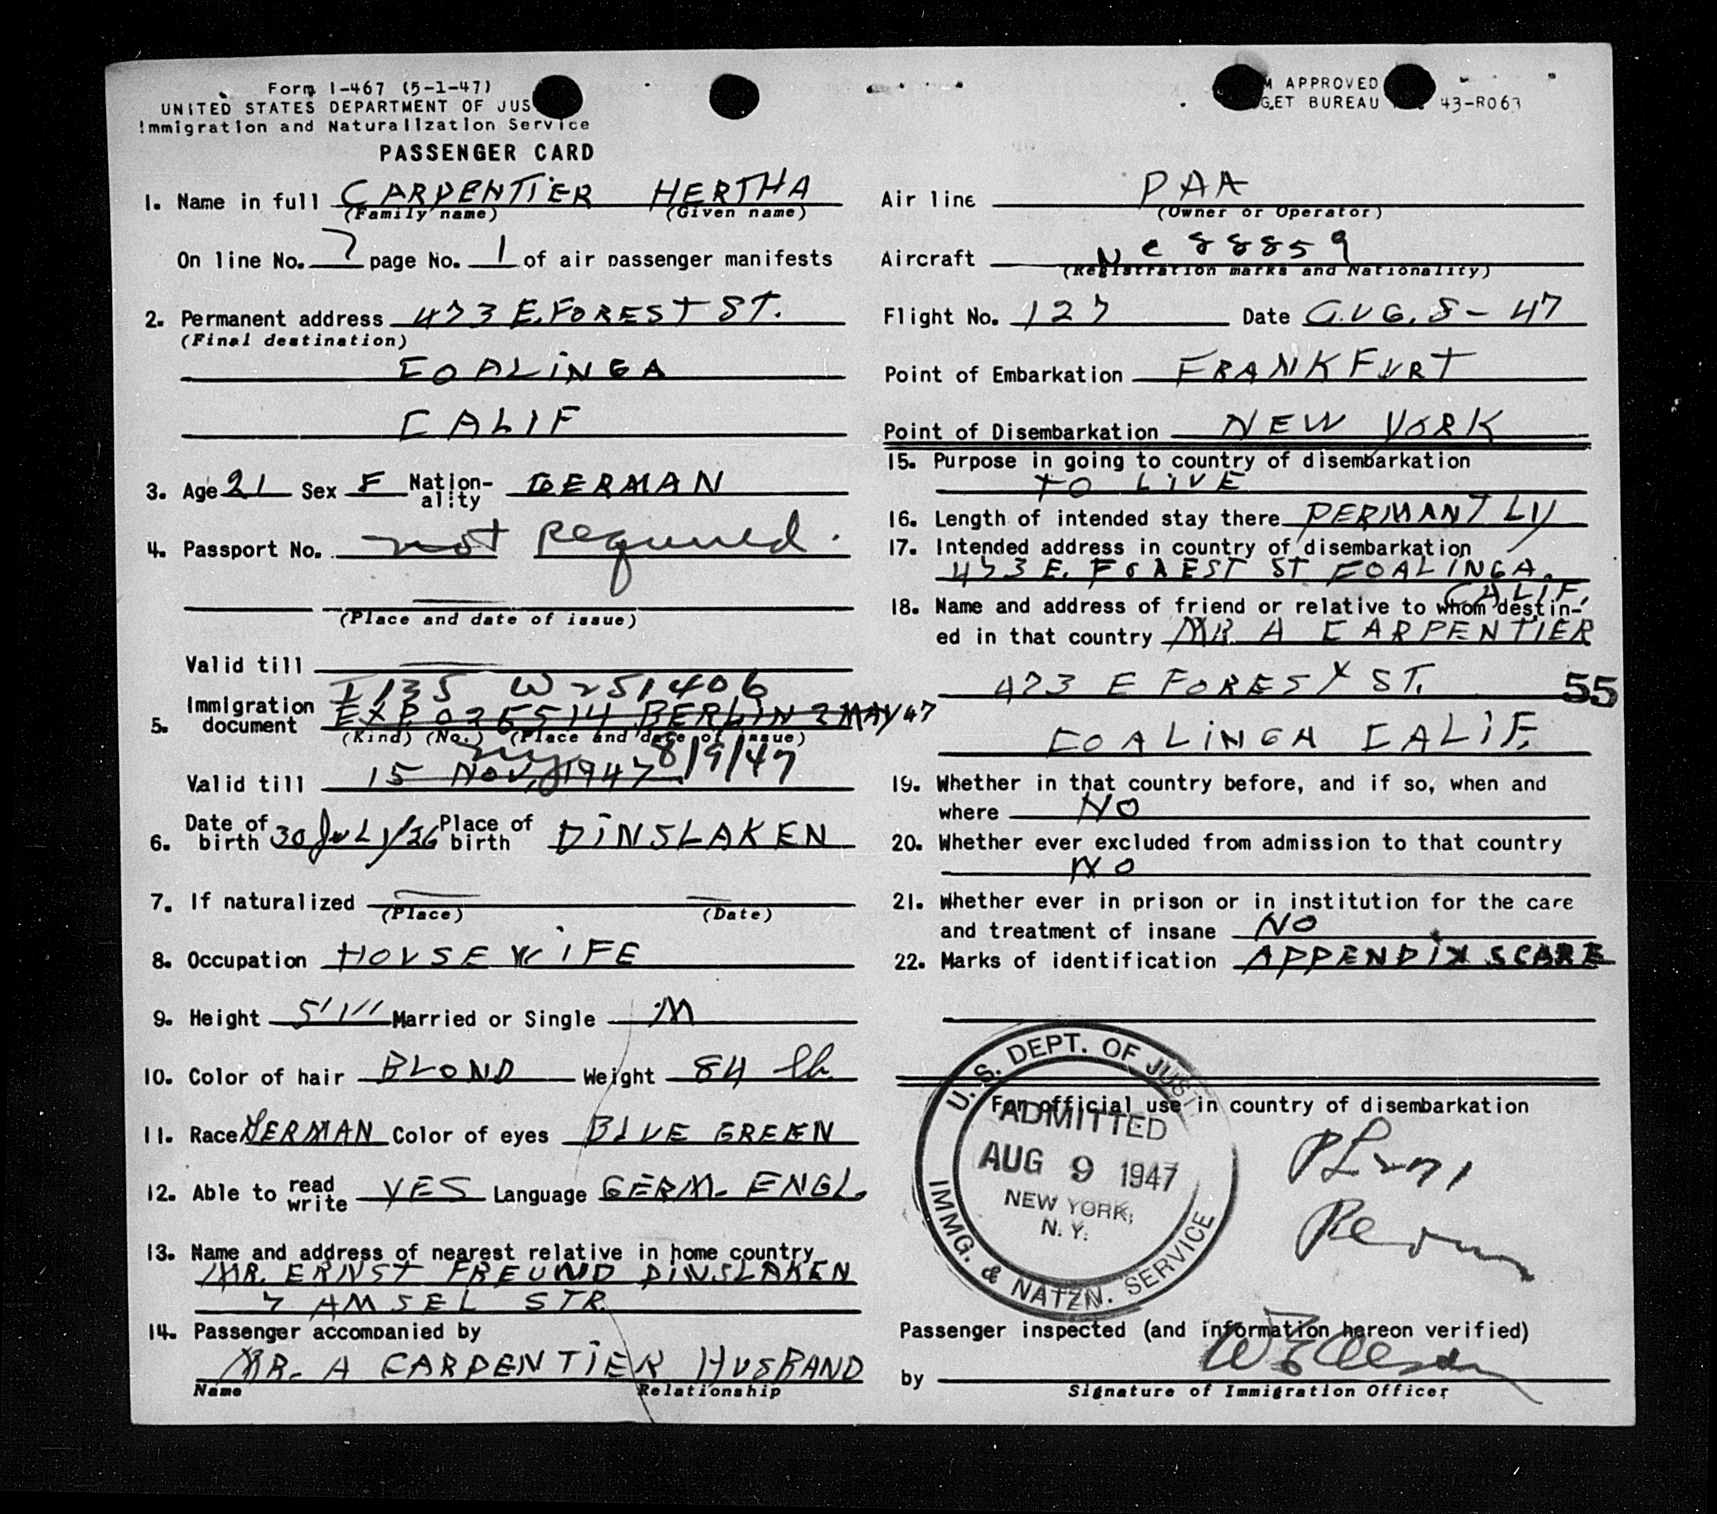 Form I-467 (5-1-47)
UNITED STATES DEPARTMENT OF JUS
Immigration and Naturalization Service
PASSENGER CARD
M APPROVED
GET BUREAU 43-R063
1. Name in full CARPENTIER HERTHA
(Family name) (Given name)
On line No. 7 page No. 1 of air passenger manifests
2. Permanent address 473 E. FOREST ST.
(Final destination)
COALINGA
CALIF
3. Age 21 Sex F Nationality GERMAN
4. Passport No. not Required.
(Place and date of issue)
Valid till
I 135 W 251406
5. Immigration document EXP. 036514 BERLIN 2 MAY 47
(Kind) (No.) (Place and date of issue)
ny 8/9/47
Valid till 15 NOV, 1947
6. Date of birth 30 JULY/26 Place of birth DINSLAKEN
7. If naturalized
(Place) (Date)
8. Occupation HOUSEWIFE
9. Height 5'1" Married or Single M
10. Color of hair BLOND Weight 84 lb.
11. Race GERMAN Color of eyes BLUE GREEN
12. Able to read write YES Language GERM. ENGL.
13. Name and address of nearest relative in home country
MR. ERNST FREUND DINSLAKEN
7 AMSEL STR.
14. Passenger accompanied by
MR. A CARPENTIER HUSBAND
Name Relationship
Air line PAA
(Owner or Operator)
Aircraft NC 88859
(Registration marks and Nationality)
Flight No. 127 Date AUG. 8-47
Point of Embarkation FRANKFURT
Point of Disembarkation NEW YORK
15. Purpose in going to country of disembarkation
TO LIVE
16. Length of intended stay there PERMANTLY
17. Intended address in country of disembarkation
473 E. FOREST ST COALINGA.
CALIF.
18. Name and address of friend or relative to whom destin-
ed in that country MR. A CARPENTIER
473 E FOREST ST.
55
COALINGA CALIF.
19. Whether in that country before, and if so, when and
where NO
20. Whether ever excluded from admission to that country
NO
21. Whether ever in prison or in institution for the care
and treatment of insane NO
22. Marks of identification APPENDIX SCARE
For official use in country of disembarkation
U. S. DEPT. OF JUST
ADMITTED
AUG 9 1947
NEW YORK,
N. Y.
IMMG. & NATZN. SERVICE
Passenger inspected (and information hereon verified)
by
Signature of Immigration Officer